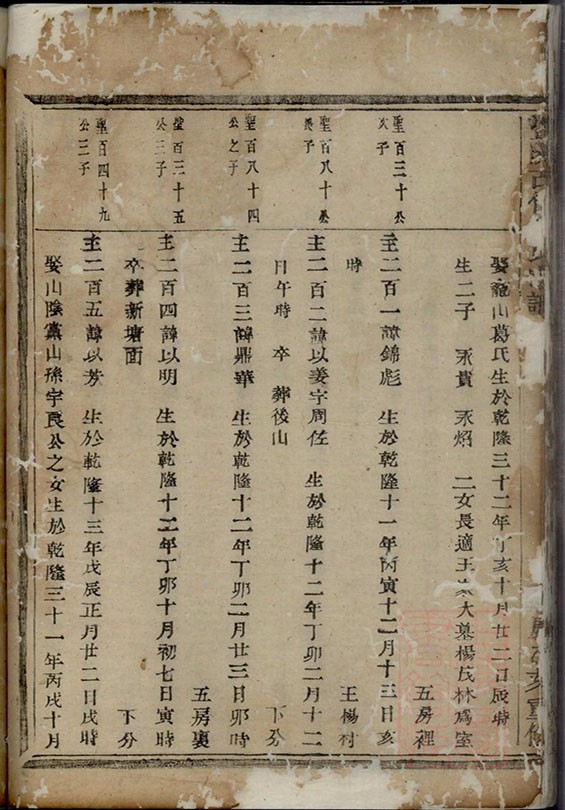 娶龍山葛氏生於乾隆三十二年丁亥十月廿二日辰時
生二子 永貴 永炤 二女長適王 大墓楊茂林爲室
五房裡
聖百三十公
次子
主二百一諱錦彪 生於乾隆十一年丙寅十二月十三日亥
時
王楊村
聖百八十公
長子
主二百二諱以姜字周任 生於乾隆十二年丁卯二月十二
日午時 卒 葬後山
下分
聖百八十四
公之子
主二百三諱鼎華 生於乾隆十二年丁卯二月廿三日卯時
五房裏
聖百三十五
公三子
主二百四諱以明 生於乾隆十二年丁卯十月初七日寅時
卒葬新塘面
下分
聖百四十九
公三子
主二百五諱以芳 生於乾隆十三年戊辰正月廿二日戌時
娶山陰黨山孫宇良公之女生於乾隆三十一年丙戌十月